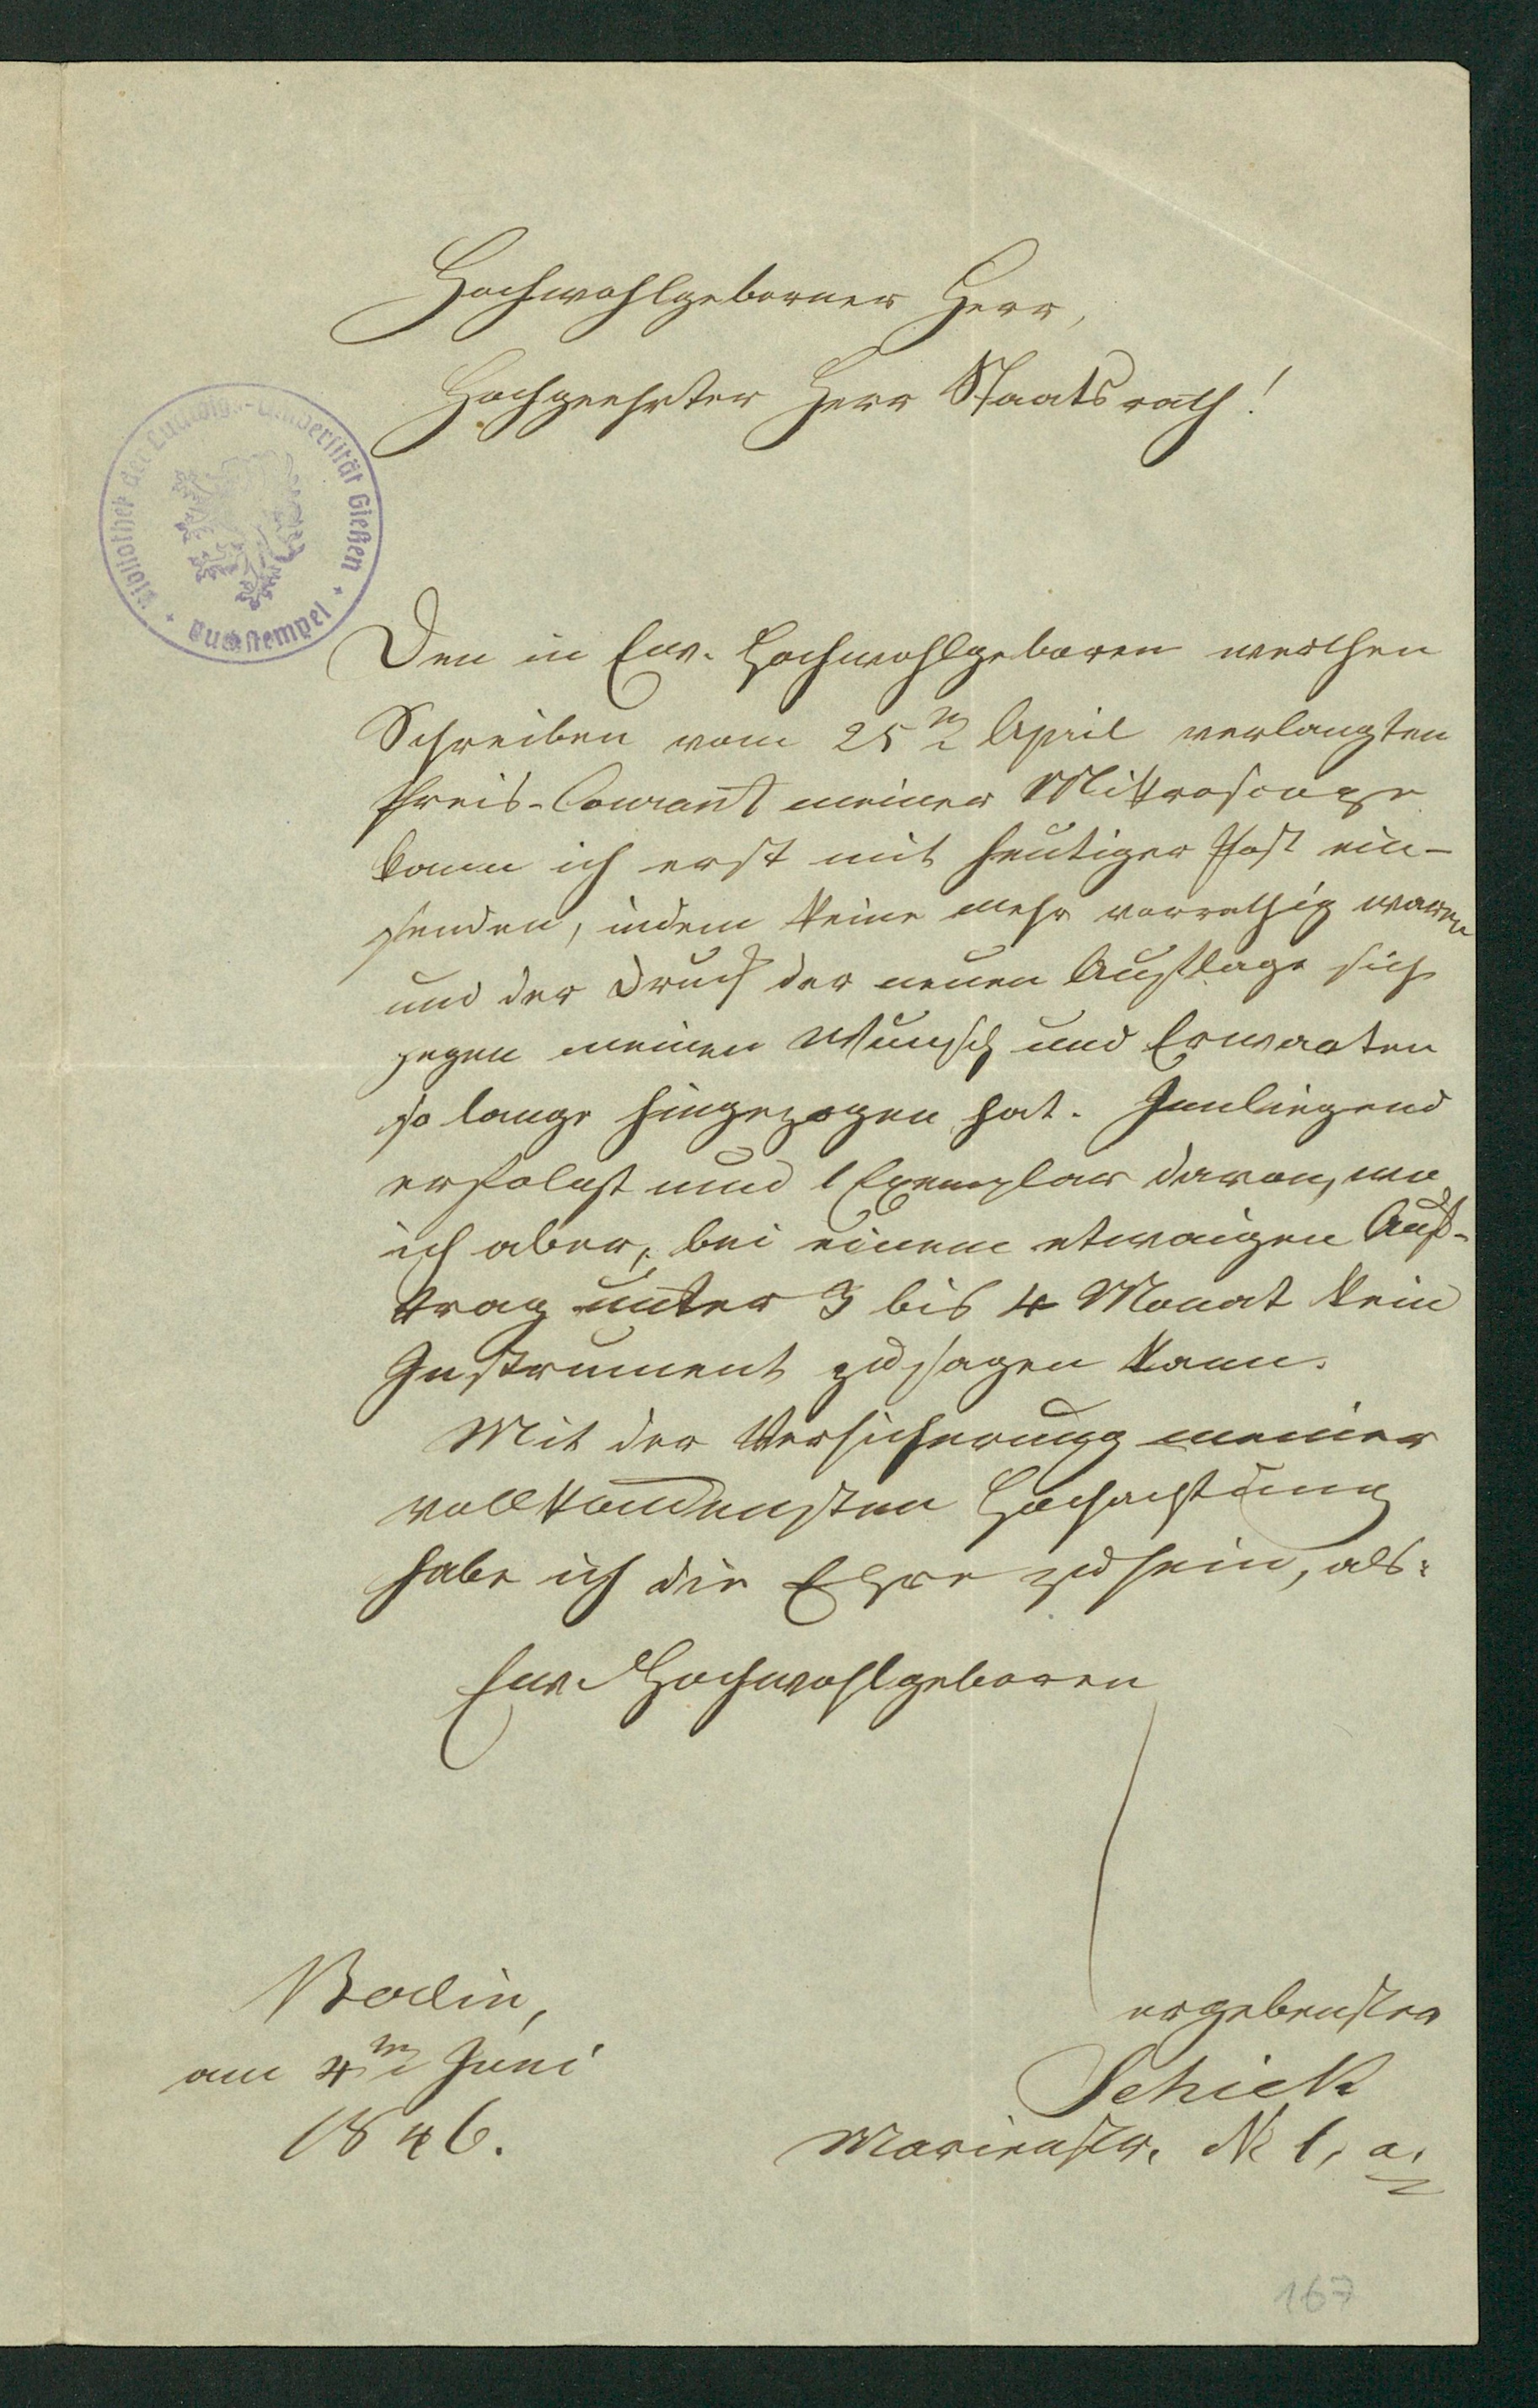 Hochwohlgeborner Herr,
Hochgeehrter Herr Staatsrath!
Bibliothek der Ludwigs-Universität Gießen
Buchstempel
Den in Euv. Hochwohlgeboren werthen
Schreiben vom 25n April verlangten
Preis-Courant meiner Mikroscope
kann ich erst mit heutiger Post ein-
senden, indem keine mehr vorrathig waren
und der Druck der neuen Auflage sich
gegen meinen Wunsch und Erwarten
so lange hingezogen hat. Innliegend
erfolgt nun 1 Exemplar davon, wo
ich aber, bei einem etwaigen Auf-
trag unter 3 bis 4 Monat kein
Instrument zusagen kann.
Mit der Versicherung meiner
vollkommensten Hochachtung
habe ich die Ehre zu sein, als:
Euv. Hochwohlgeboren
Berlin,
am 4n Juni
1846.
ergebenster
Schiek
Marienstr. № 1, a.
167